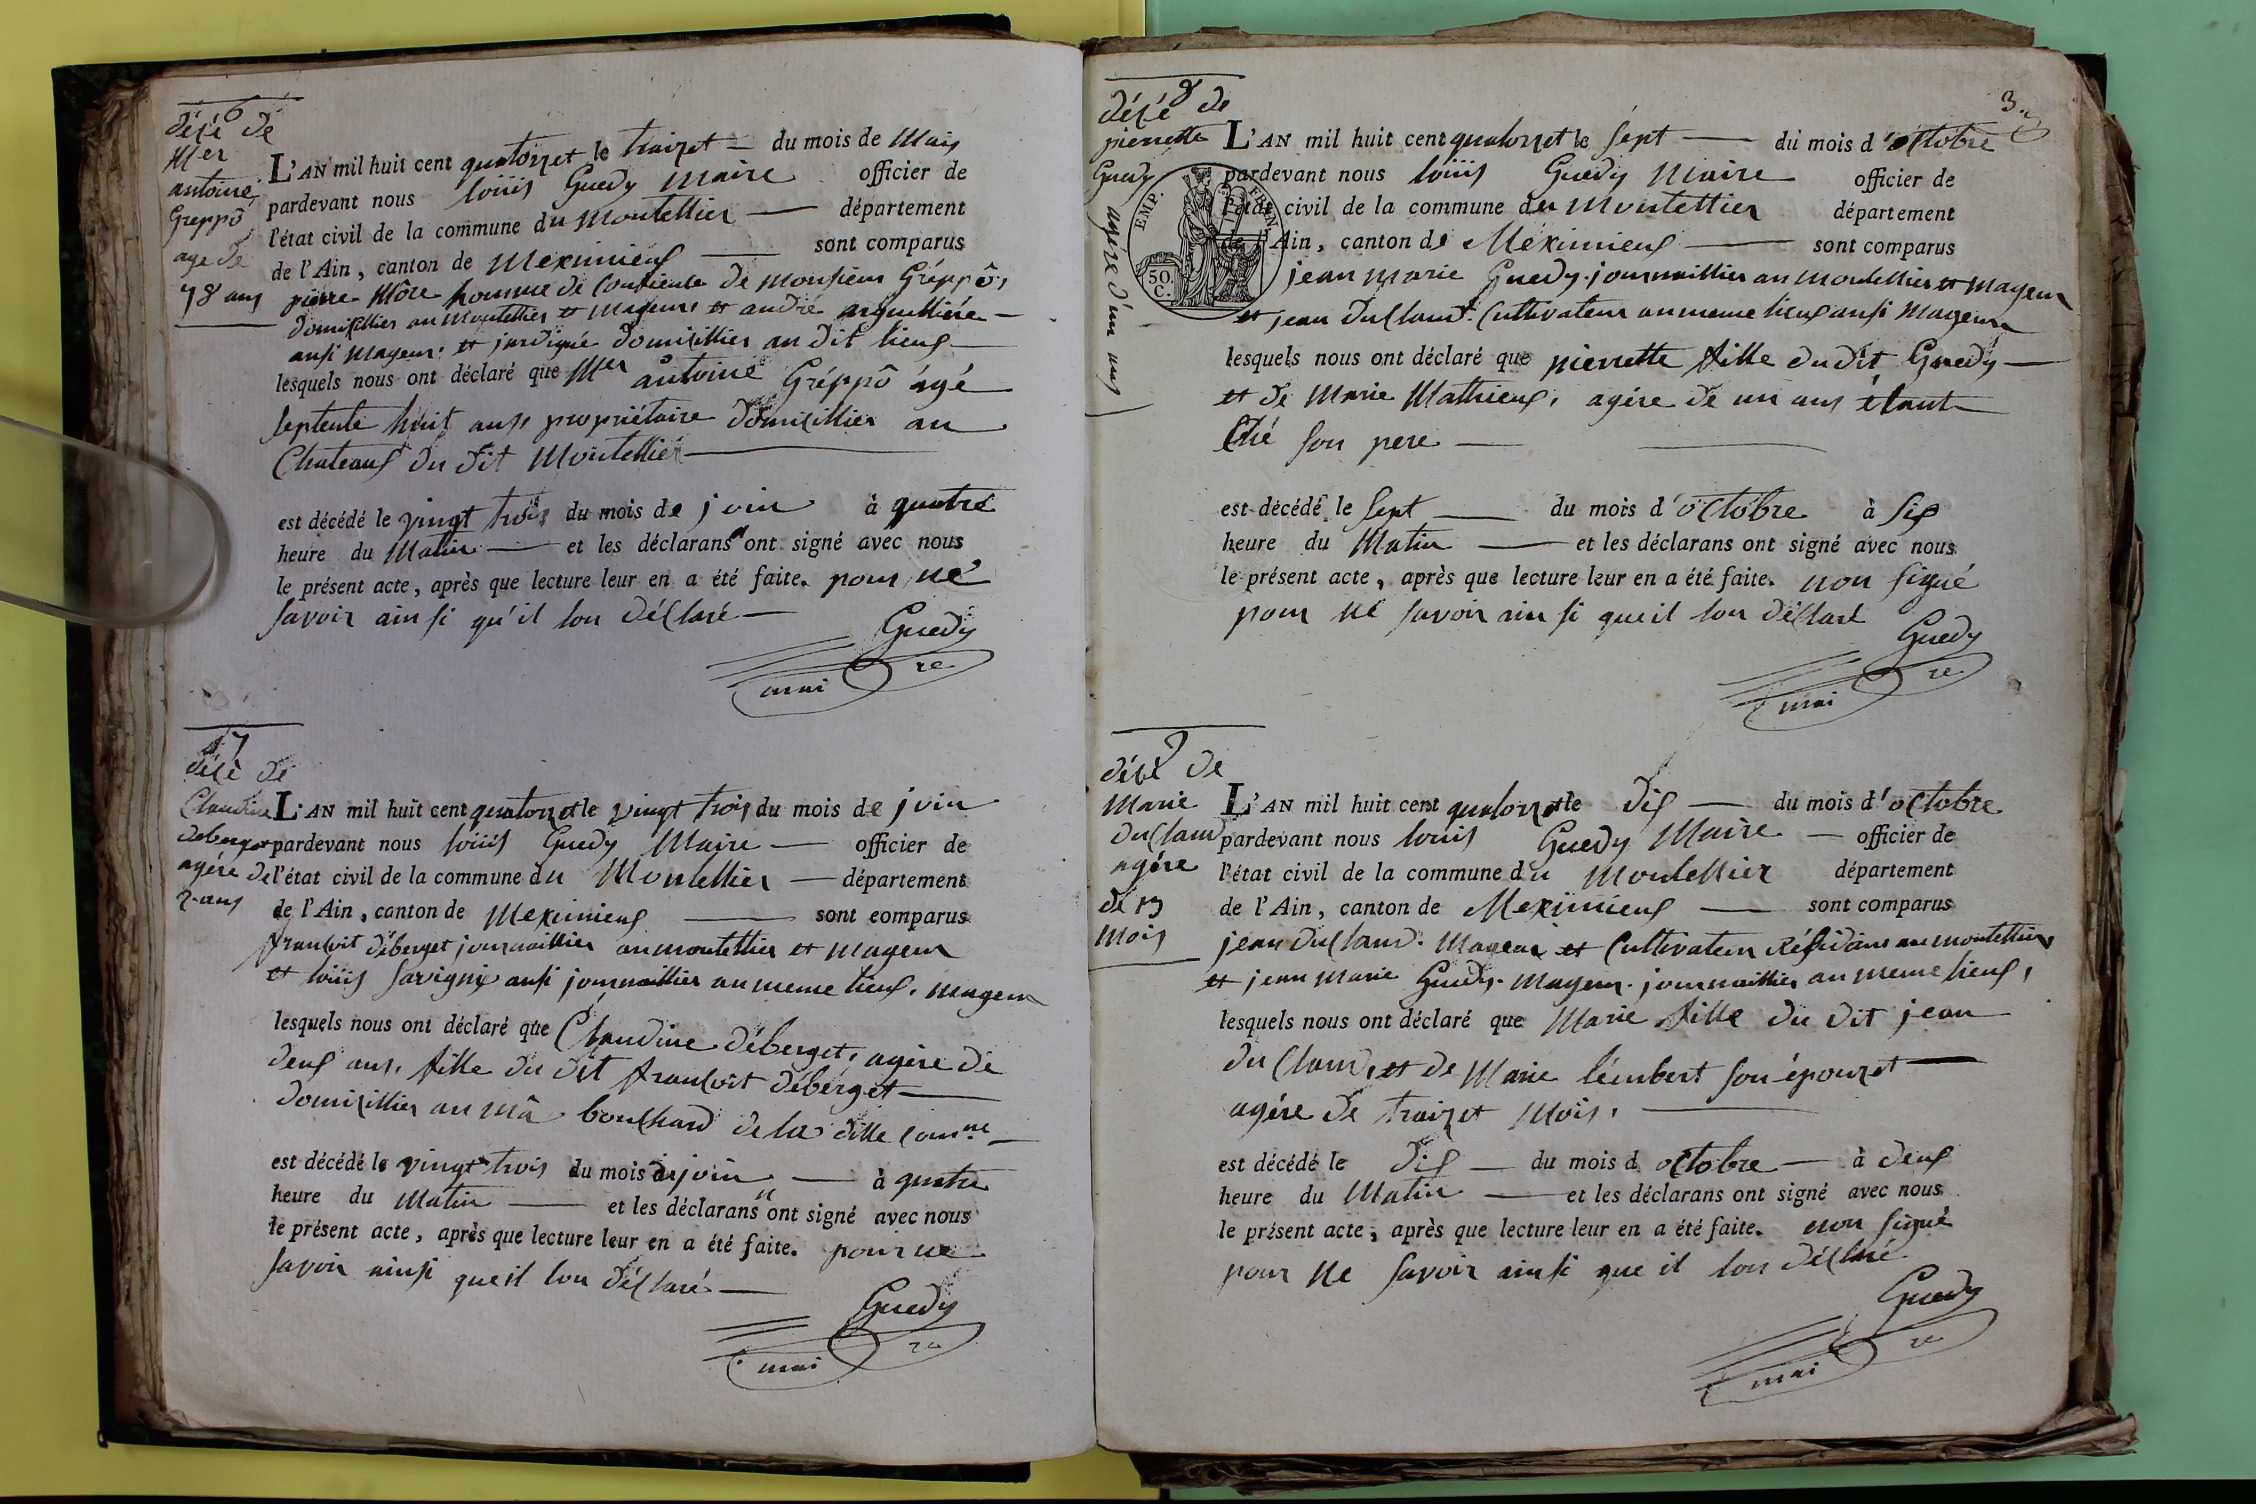 6
décé de
Mer
antoine
Greppô
age de
78 ans
L'AN mil huit cent quatorzet le traizet du mois de Mais
pardevant nous loüis Guedy Maire officier de
l'état civil de la commune du Montellier département
de l'Ain, canton de Meximieux sont comparus
pierre Môre homme de Confiente de Monsieur Gréppô,
domicillier au Montellier et Mageur et andré arguillière
ausi Mageur et jurdigué domicillier au dit lieux
lesquels nous ont déclaré que Mer antoine Gréppô âgé
septente huit ans propriétaire domicillier au
Chateaux du dit Montellier
est décédé le vingt trois du mois de join à quatre
heure du Matin et les déclarans ont signé avec nous
le présent acte, après que lecture leur en a été faite. pour ne
savoir ainsi qu'il lon déClaré
Guedy
maire
7
décè de
Claudine
deberget
agére de
2 ans
L'AN mil huit cent quatorzet le vingt trois du mois de join
pardevant nous loüis Guedy Maire officier de
l'état civil de la commune du Montellier département
de l'Ain, canton de Meximieux sont comparus
françoit déberget journaillier au montellier et mageur
et loüis savignÿ ausi journaillier au meme lieux, mageur
lesquels nous ont déclaré que Claudine déberget, agére de
deux ans, fille du dit françoit déberget
domicillier au mâ bouchard de la ditte comne
est décédé le vingt trois du mois de join à quatre
heure du Matin et les déclarans ont signé avec nous
le présent acte, après que lecture leur en a été faite. pour ne
savoir ainsi que il lon déClaré
Guedy
maire
3
8
décé de
pierrette
Guedy
agére d'un ans
EMP. FRAN.
50 C.
L'AN mil huit cent quatorzet le sept du mois d'octobre
pardevant nous loüis Guedy Maire officier de
l'état civil de la commune du Montellier département
de l'Ain, canton de Méximieux sont comparus
jean marie Guedy journaillier au montellier et mageur
et jean duClaud Cultivateur au meme lieux ausi Mageur
lesquels nous ont déclaré que pierrette fille du dit Guedy
et de Marie Mathieux, agére de un ans étant
Ché son pere
est décédé le sept du mois d'octobre à six
heure du Matin et les déclarans ont signé avec nous
le présent acte, après que lecture leur en a été faite. non signé
pour ne savoir ainsi que il lon déClaré
Guedy
maire
9
décé de
Marie
duClaud
agére
de 13
Mois
L'AN mil huit cent quatorzet le dix du mois d'octobre
pardevant nous louis Guedy Maire officier de
l'état civil de la commune du Montellier département
de l'Ain, canton de Meximieux sont comparus
jean duClaud. Mageur et Cultivateur Résidant au montellier
et jean marie Guedy. Mageur. journaillier au meme lieux,
lesquels nous ont déclaré que Marie fille du dit jean
duClaud, et de Marie lémbert son épouzet
agére de traizet Mois,
est décédé le dix du mois d octobre à deux
heure du Matin et les déclarans ont signé avec nous
le présent acte, après que lecture leur en a été faite. non signé
pour ne savoir ainsi que il lon déClaré
Guedy
maire